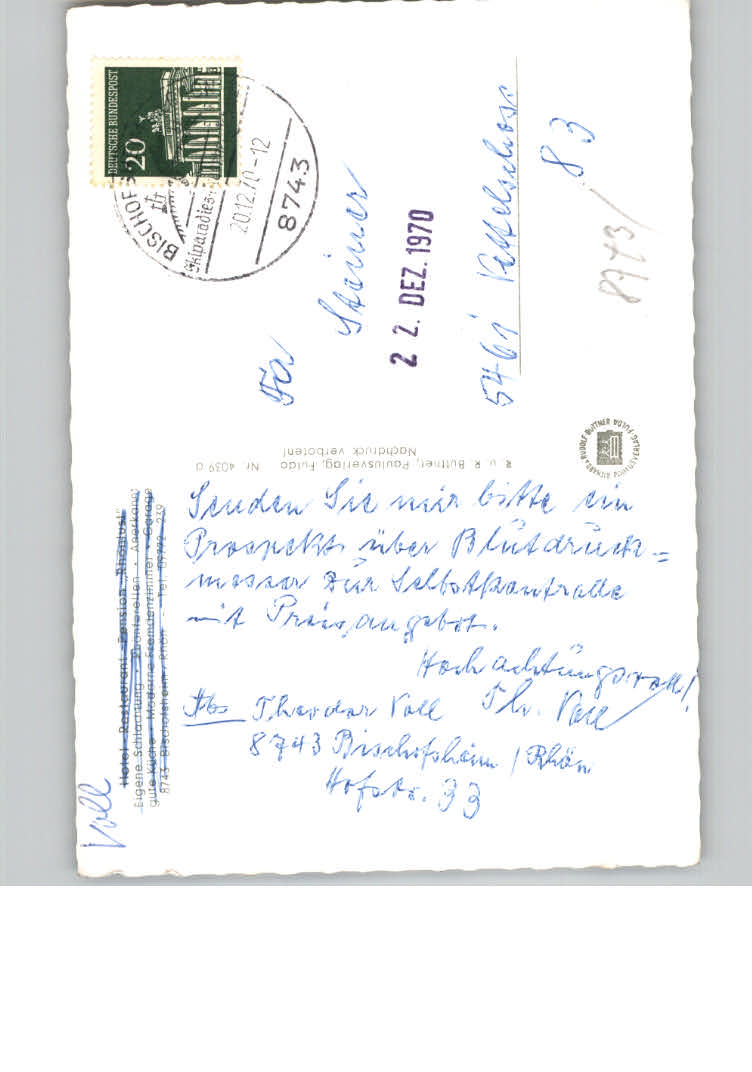 DEUTSCHE BUNDESPOST
20
BISCHOFS
Skiparadies
20.12.70-12
8743
Fa Steiner
22. DEZ. 1970
5461 Vettelschoss
83
8743/
R. u. R. Büttner, Paulusverlag, Fulda Nr. 4039 d
Nachdruck verboten!
RICHARD & RUDOLF BÜTTNER FULDA PAULUSVERLAG
Hotel - Restaurant - Pension „Rhönlust"
Eigene Schlachtung · Rhönforellen · Anerkannt
gute Küche · Moderne Fremdenzimmer · Garage
8743 Bischofsheim/Rhön · Tel. 09772 - 239
Voll
Senden Sie mir bitte ein
Prospekt über Blutdruck=
messer zur Selbstkontrolle
mit Preisangebot.
Hochachtungsvoll!
Abs Theodor Voll Th. Voll
8743 Bischofsheim / Rhön
Hofstr. 33